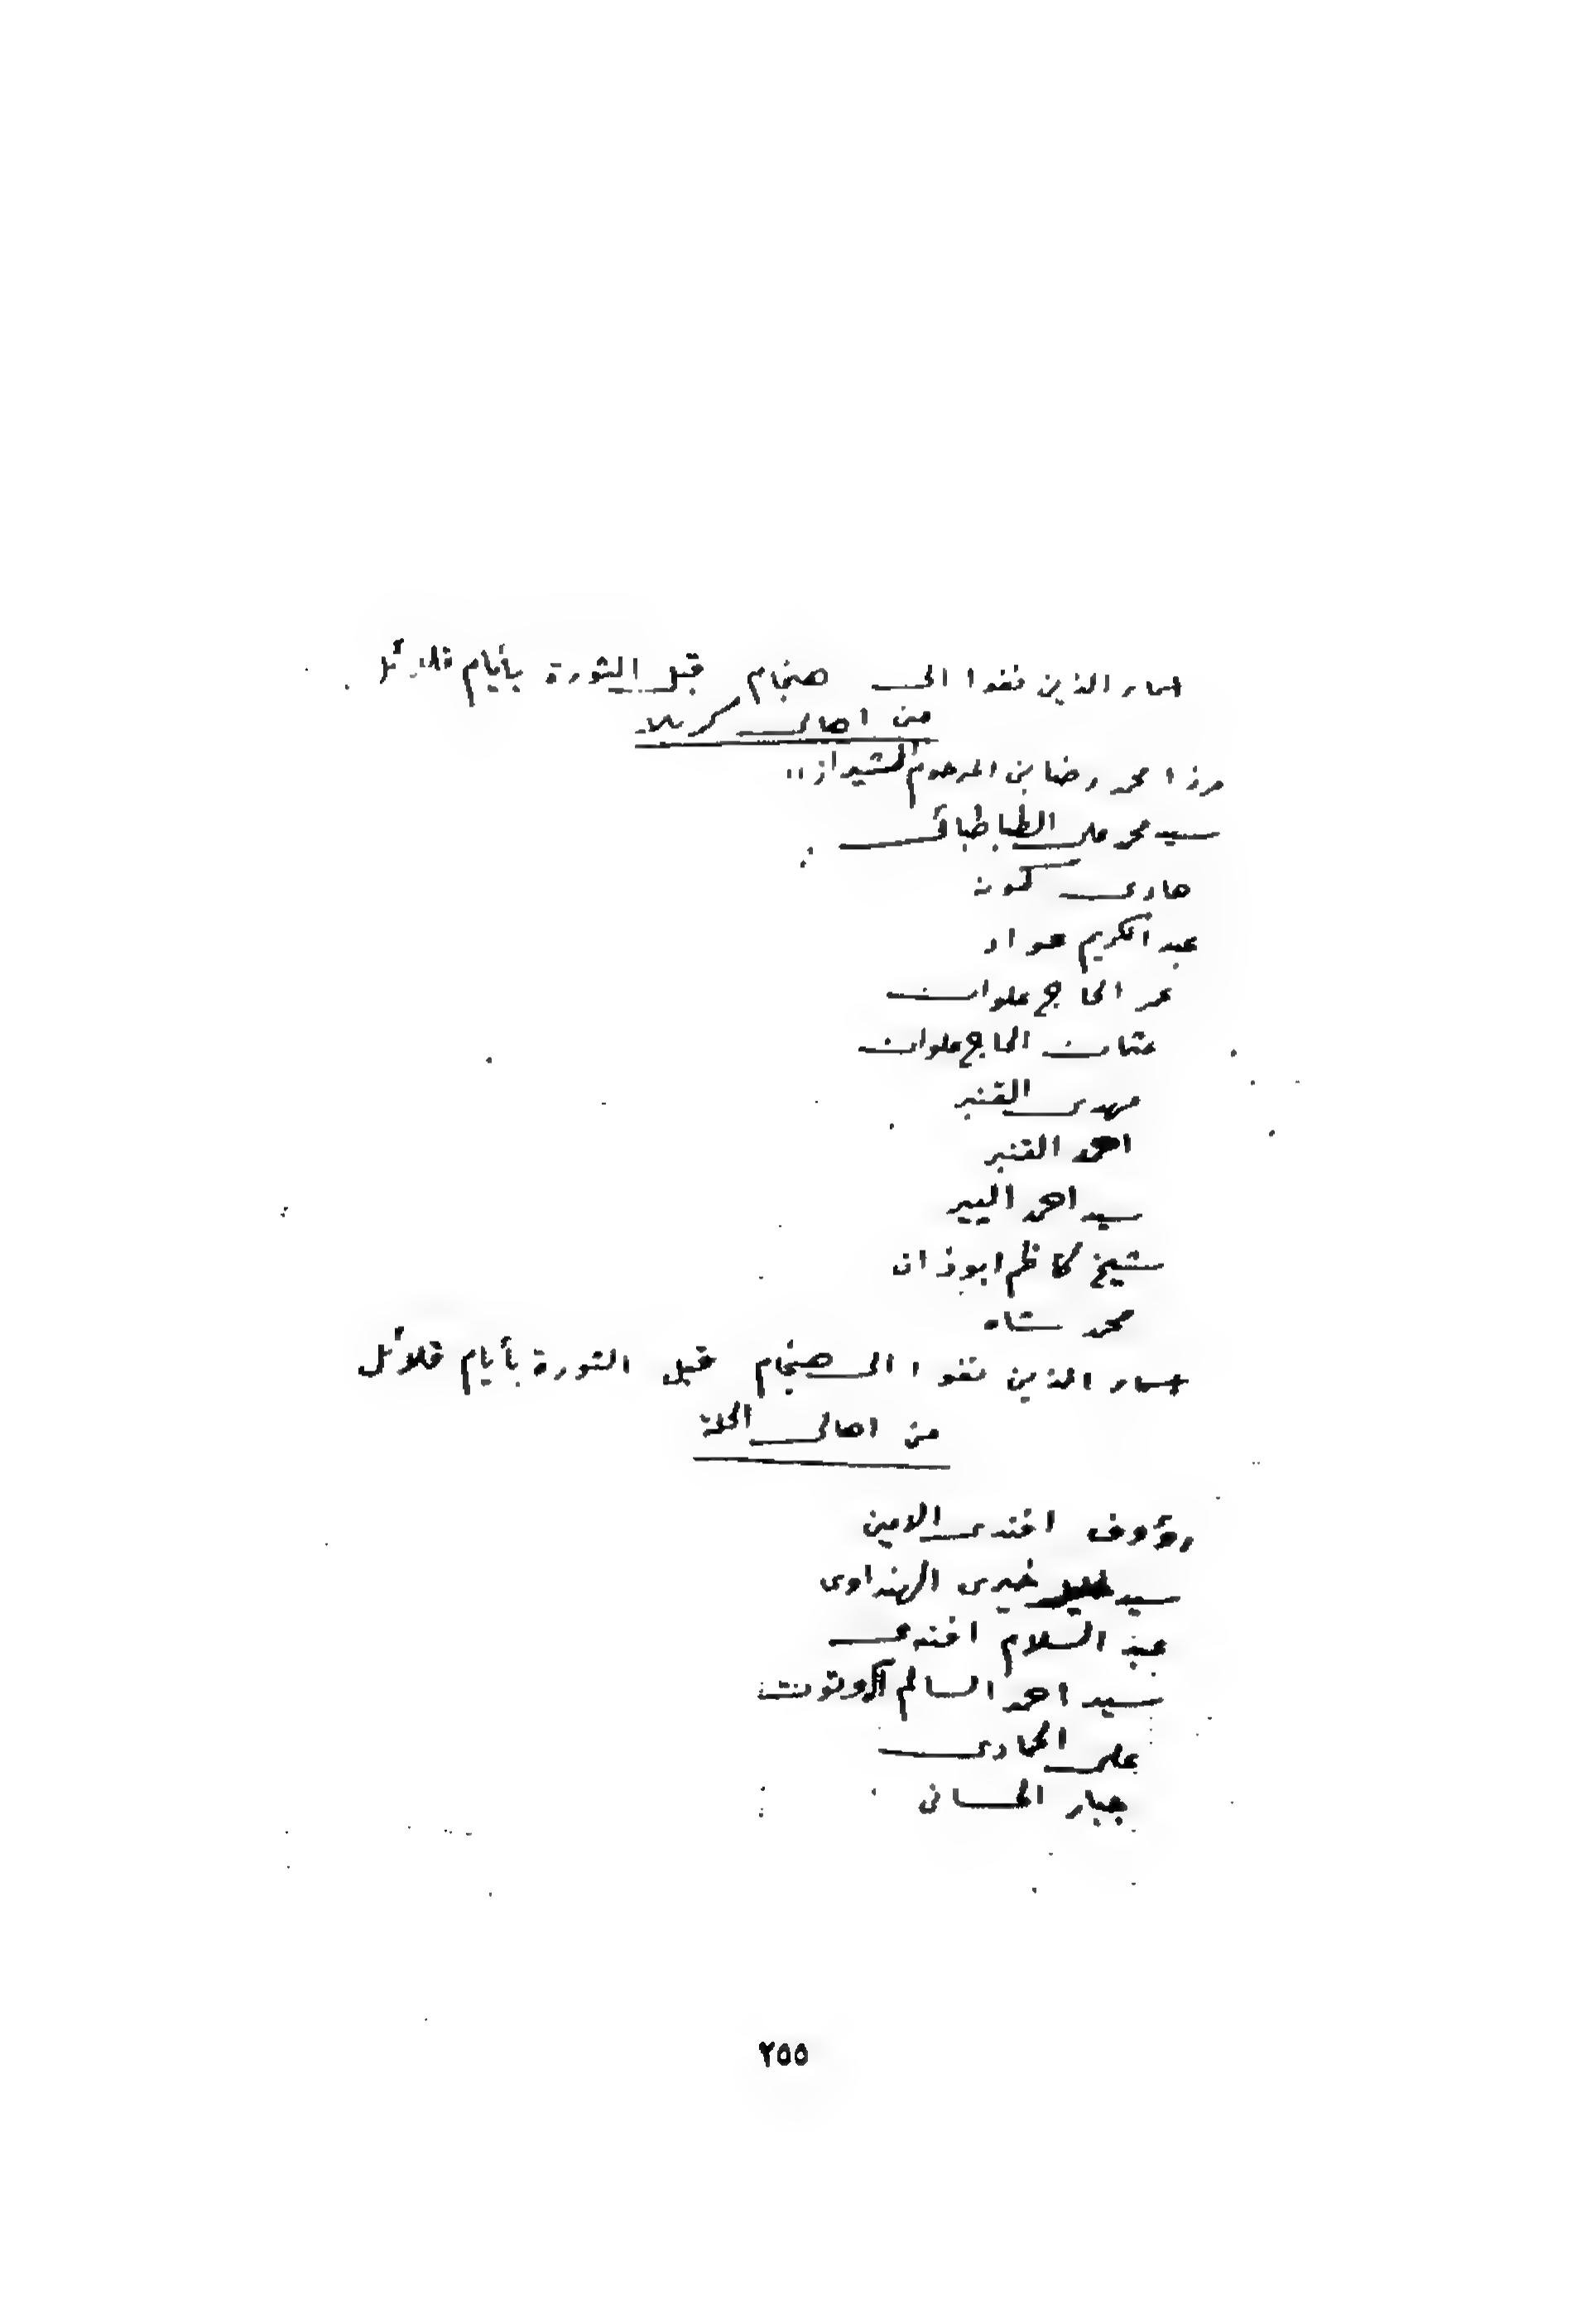 اسماء الذين نفوا الى هنجام قبل الثورة بأيام قلائل
من اهالى كربلاء
مرزا محمد رضا بن المرحوم الشيرازي
سيد محمد على الطباطبائى
هادى كمونه
عبد الكريم عواد
عمر الحاج علوان
عثمان الحاج علوان
مهدى القنبر
احمد القنبر
سيد احمد البير
شيخ كاظم ابوذان
محمد شاه
اسماء الذين نفوا الى هنجام قبل الثورة بأيام قلائل
من اهالى الحلة
رؤوف افندى الامين
سيد خيرى الهنداوى
عبد السلام افندى
سيد احمد السالم
على الحمادى
جبار الحسانى
٢٥٥